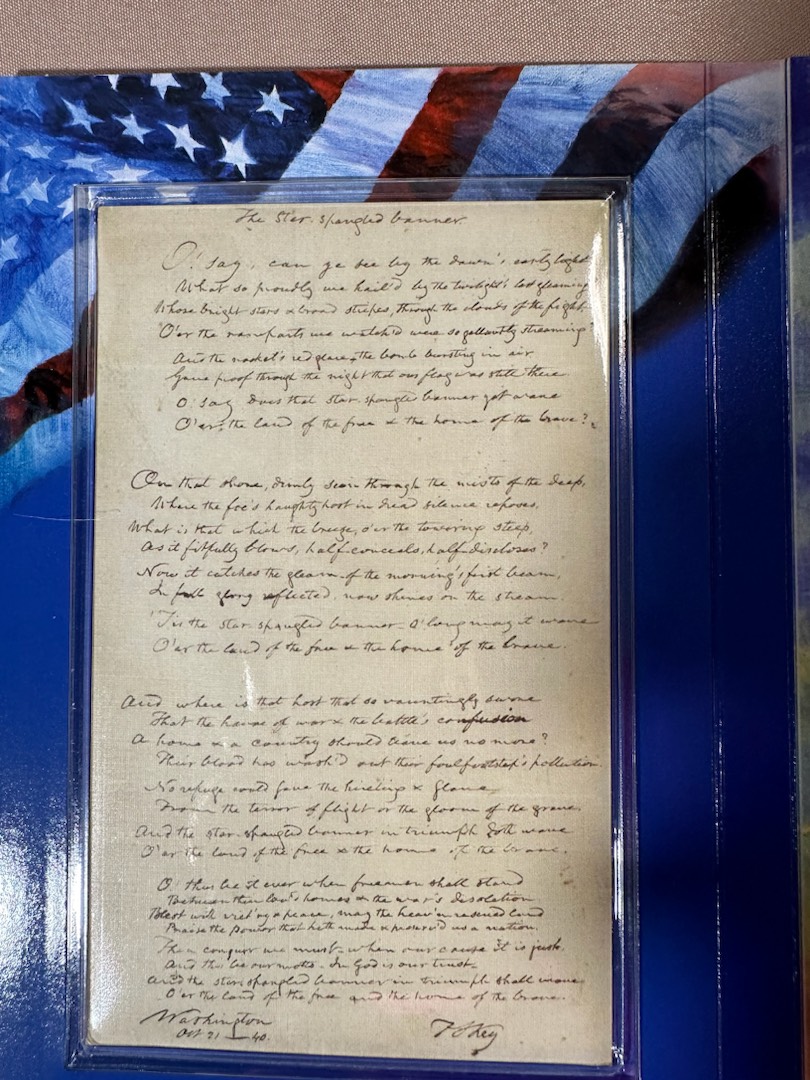 The Star-spangled banner
O! say, can ye see by the dawn's early light
What so proudly we hail'd by the twilight's last gleaming
Whose bright stars & broad stripes, through the clouds of the fight
O'er the ramparts we watch'd were so gallantly streaming?
And the rocket's red glare - the bomb bursting in air
Gave proof through the night that our flag was still there
O! say, does that star-spangled banner yet wave
O'er the land of the free & the home of the brave?
On that shore, dimly seen through the mists of the deep,
Where the foe's haughty host in dread silence reposes,
What is that which the breeze, o'er the towering steep,
As it fitfully blows, half-conceals, half-discloses?
Now it catches the gleam of the morning's first beam,
In full glory reflected, now shines on the stream.
'Tis the star-spangled banner - O! long may it wave
O'er the land of the free & the home of the brave.
And where is that host that so vauntingly swore
That the havoc of war & the battle's confusion
A home & a country should leave us no more?
Their blood has wash'd out their foul footstep's pollution.
No refuge could save the hireling & slave
From the terror of flight or the gloom of the grave,
And the star-spangled banner in triumph doth wave
O'er the land of the free & the home of the brave.
O! thus be it ever when freemen shall stand
Between their lov'd homes & the war's desolation
Blest with vict'ry & peace, may the heav'n rescued land
Praise the power that hath made & preserv'd us a nation.
Then conquer we must - when our cause it is just,
And this be our motto - In God is our trust -
And the star-spangled banner in triumph shall wave
O'er the land of the free and the home of the brave.
Washington
Oct 21 - 40.
F S Key